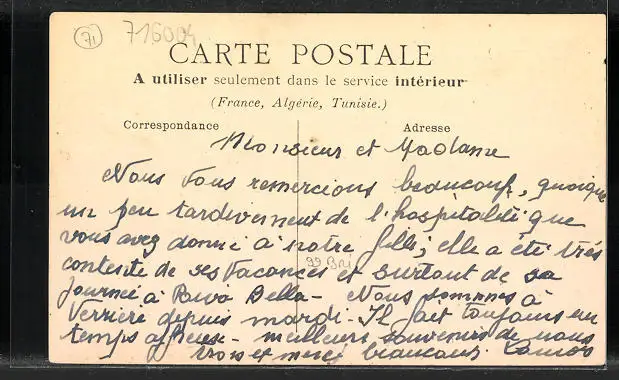 71
716004
CARTE POSTALE
A utiliser seulement dans le service intérieur
(France, Algérie, Tunisie.)
Correspondance
Adresse
Monsieur et Madame
Nous vous remercions beaucoup, quoique
un peu tardivement de l'hospitalité que
vous avez donné à notre fille; elle a été très
contente de ses vacances et surtout de sa
99 Bri
journée à Riva Bella - Nous sommes à
Verrière depuis mardi. Il fait toujours un
temps affreux - meilleurs souvenirs de nous
trois et merci beaucoup.